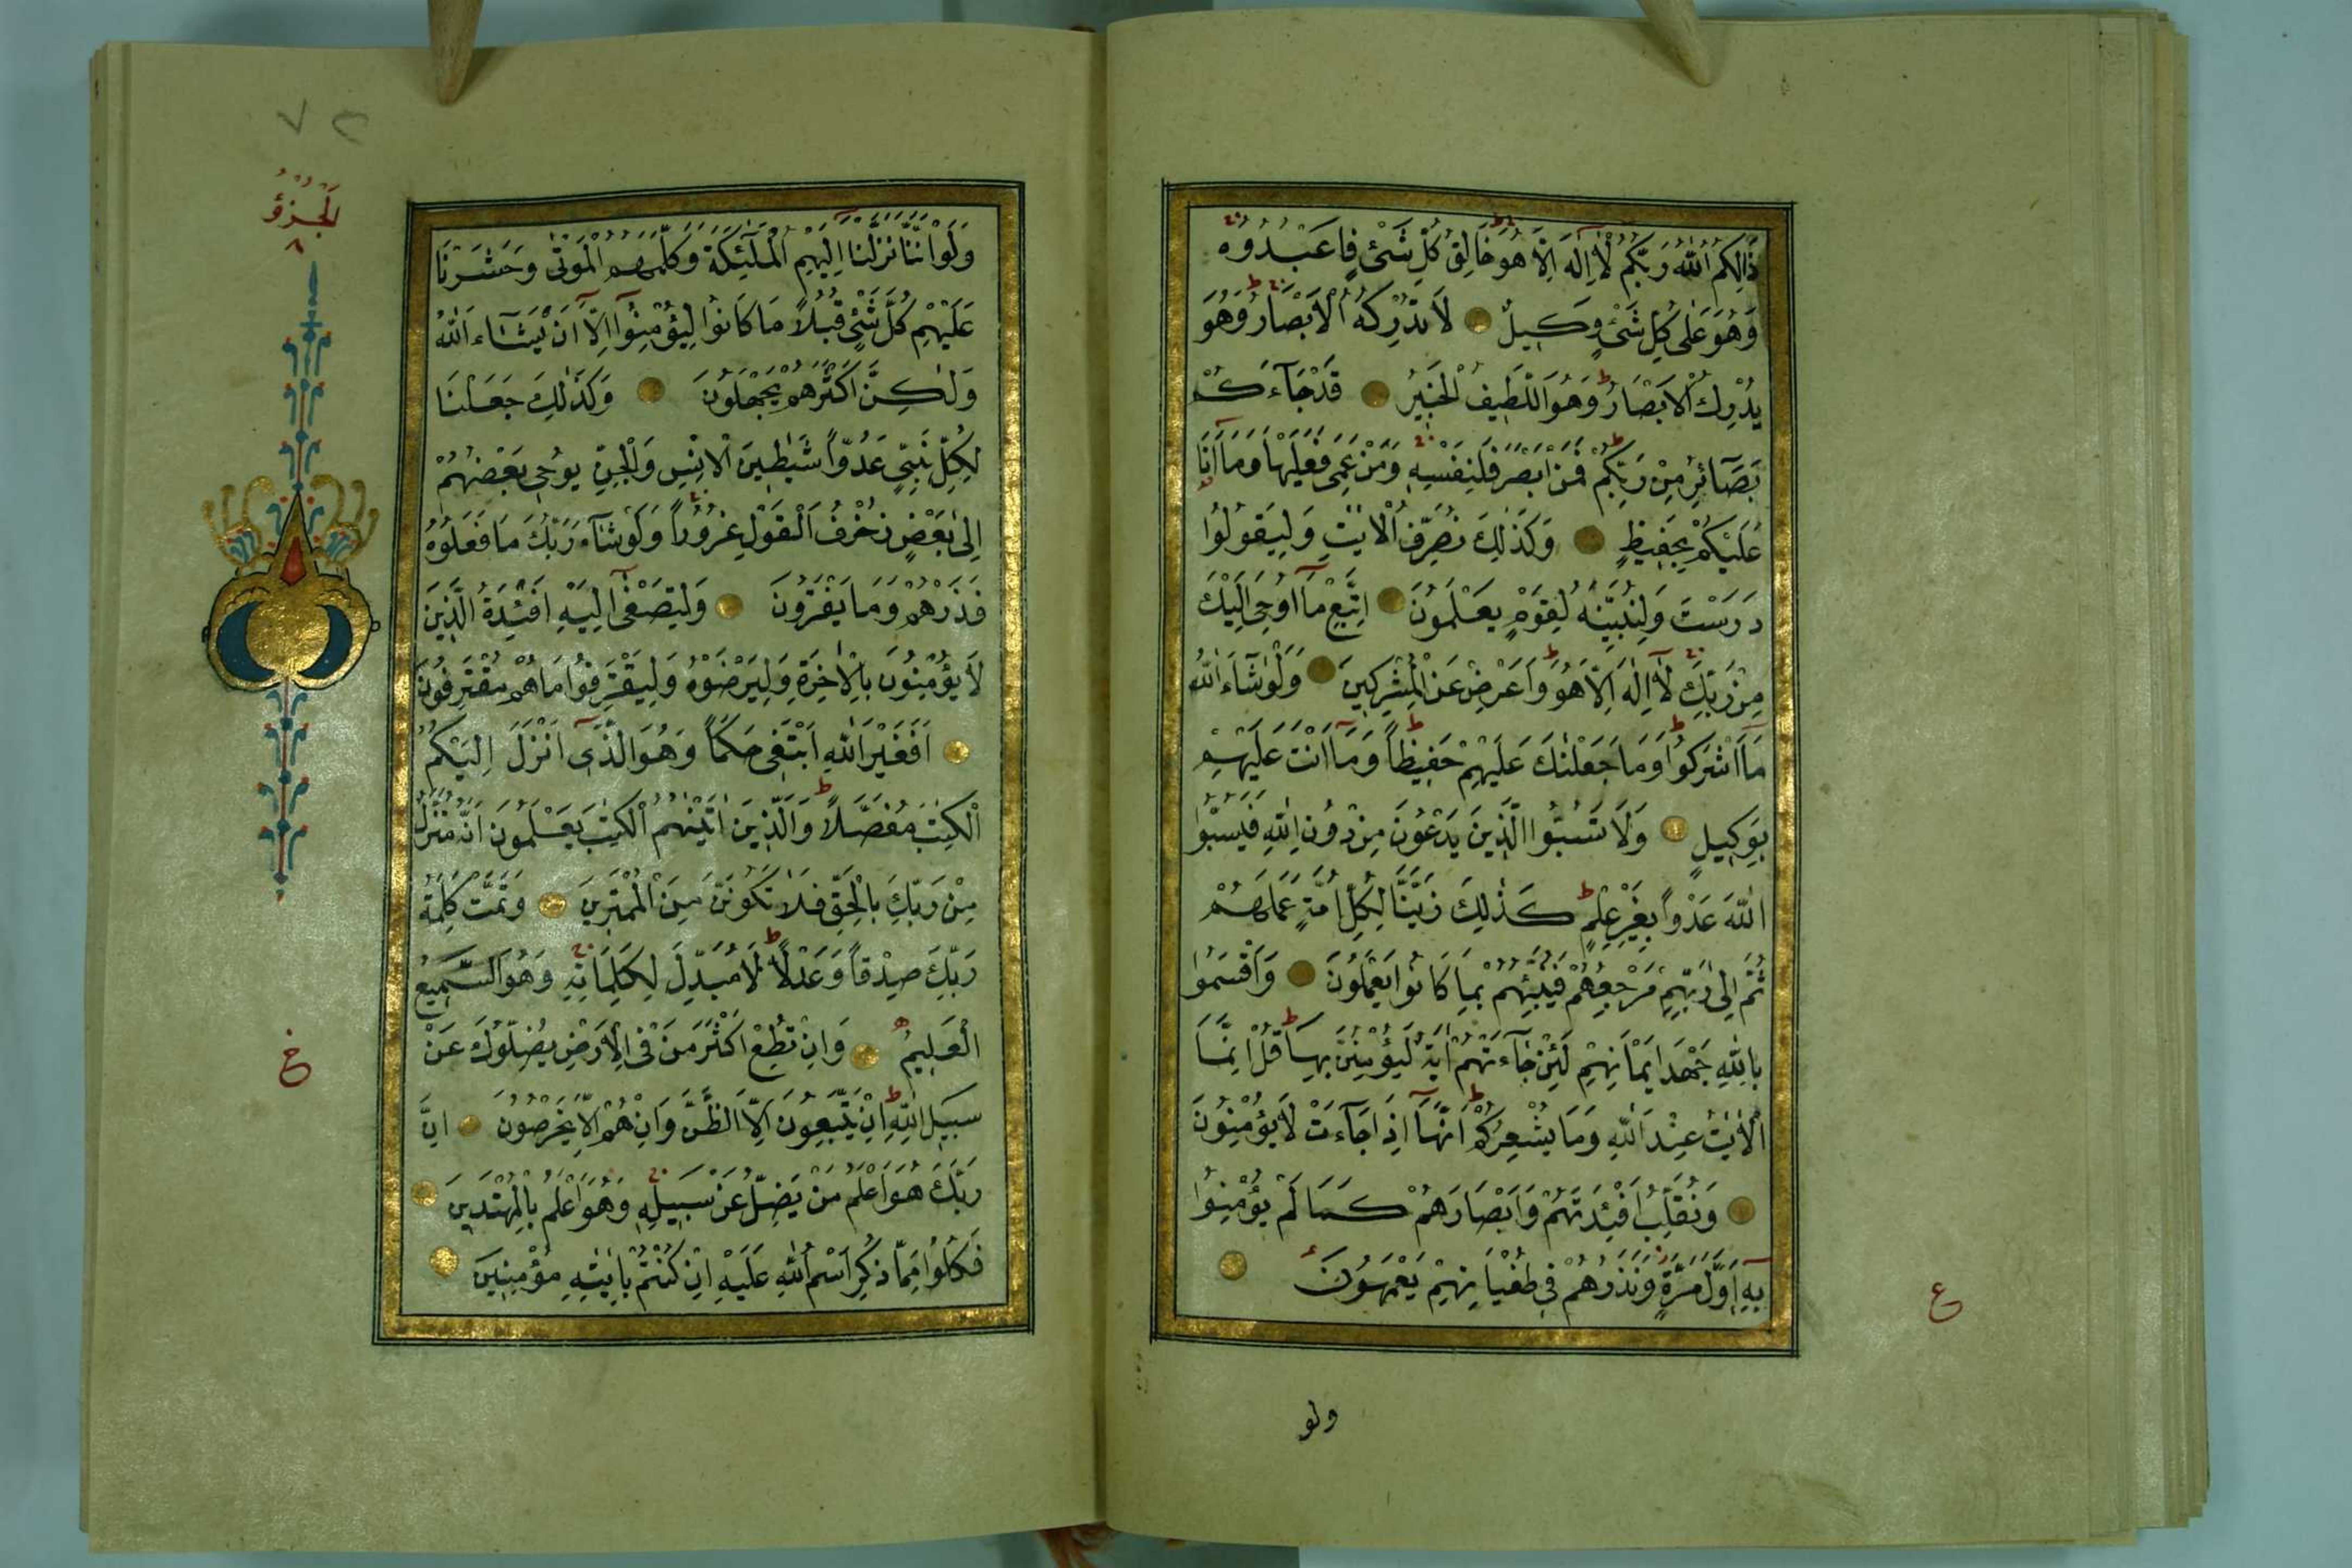 ذَالِكُمُ اللّٰهُ رَبُّكُمْ لَٓا اِلٰهَ اِلَّا هُوَ خَالِقُ كُلِّ شَیْءٍ فَاعْبُدُوهُ
وَهُوَ عَلٰى كُلِّ شَیْءٍ وَكِيلٌ لَا تُدْرِكُهُ الْاَبْصَارُ وَهُوَ
يُدْرِكُ الْاَبْصَارَ وَهُوَ اللَّطِيفُ الْخَبِيرُ قَدْ جَٓاءَكُمْ
بَصَٓائِرُ مِنْ رَبِّكُمْ فَمَنْ اَبْصَرَ فَلِنَفْسِهِ وَمَنْ عَمِیَ فَعَلَيْهَا وَمَٓا اَنَا
عَلَيْكُمْ بِحَفِيظٍ وَكَذٰلِكَ نُصَرِّفُ الْاٰيٰتِ وَلِيَقُولُوا
دَرَسْتَ وَلِنُبَيِّنَهُ لِقَوْمٍ يَعْلَمُونَ اِتَّبِعْ مَٓا اُوحِیَ اِلَيْكَ
مِنْ رَبِّكَ لَٓا اِلٰهَ اِلَّا هُوَ وَاَعْرِضْ عَنِ الْمُشْرِكِينَ وَلَوْ شَٓاءَ اللّٰهُ
مَٓا اَشْرَكُوا وَمَا جَعَلْنٰكَ عَلَيْهِمْ حَفِيظاً وَمَٓا اَنْتَ عَلَيْهِمْ
بِوَكِيلٍ وَلَا تَسُبُّوا الَّذِينَ يَدْعُونَ مِنْ دُونِ اللّٰهِ فَيَسُبُّوا
اللّٰهَ عَدْواً بِغَيْرِ عِلْمٍ كَذٰلِكَ زَيَّنَّا لِكُلِّ اُمَّةٍ عَمَلَهُمْ
ثُمَّ اِلٰى رَبِّهِمْ مَرْجِعُهُمْ فَيُنَبِّئُهُمْ بِمَا كَانُوا يَعْمَلُونَ وَاَقْسَمُوا
بِاللّٰهِ جَهْدَ اَيْمَانِهِمْ لَئِنْ جَٓاءَتْهُمْ اٰيَةٌ لَيُؤْمِنُنَّ بِهَا قُلْ اِنَّمَا
الْاٰيٰتُ عِنْدَ اللّٰهِ وَمَا يُشْعِرُكُمْ اَنَّهَٓا اِذَا جَٓاءَتْ لَا يُؤْمِنُونَ
وَنُقَلِّبُ اَفْئِدَتَهُمْ وَاَبْصَارَهُمْ كَمَا لَمْ يُؤْمِنُوا
بِهِٓ اَوَّلَ مَرَّةٍ وَنَذَرُهُمْ فِی طُغْيَانِهِمْ يَعْمَهُونَ
ع
ولو
٧٢
الْجُزْؤُ
٨
وَلَوْ اَنَّنَا نَزَّلْنَٓا اِلَيْهِمُ الْمَلٰٓئِكَةَ وَكَلَّمَهُمُ الْمَوْتٰى وَحَشَرْنَا
عَلَيْهِمْ كُلَّ شَیْءٍ قُبُلًا مَا كَانُوا لِيُؤْمِنُٓوا اِلَّٓا اَنْ يَشَٓاءَ اللّٰهُ
وَلٰكِنَّ اَكْثَرَهُمْ يَجْهَلُونَ وَكَذٰلِكَ جَعَلْنَا
لِكُلِّ نَبِیٍّ عَدُوّاً شَيٰطِينَ الْاِنْسِ وَالْجِنِّ يُوحِی بَعْضُهُمْ
اِلٰى بَعْضٍ زُخْرُفَ الْقَوْلِ غُرُوراً وَلَوْ شَٓاءَ رَبُّكَ مَا فَعَلُوهُ
فَذَرْهُمْ وَمَا يَفْتَرُونَ وَلِتَصْغٰٓى اِلَيْهِ اَفْئِدَةُ الَّذِينَ
لَا يُؤْمِنُونَ بِالْاٰخِرَةِ وَلِيَرْضَوْهُ وَلِيَقْتَرِفُوا مَا هُمْ مُقْتَرِفُونَ
اَفَغَيْرَ اللّٰهِ اَبْتَغِی حَكَماً وَهُوَ الَّذِٓی اَنْزَلَ اِلَيْكُمُ
الْكِتٰبَ مُفَصَّلًا وَالَّذِينَ اٰتَيْنٰهُمُ الْكِتٰبَ يَعْلَمُونَ اَنَّهُ مُنَزَّلٌ
مِنْ رَبِّكَ بِالْحَقِّ فَلَا تَكُونَنَّ مِنَ الْمُمْتَرِينَ وَتَمَّتْ كَلِمَةُ
رَبِّكَ صِدْقاً وَعَدْلًا لَا مُبَدِّلَ لِكَلِمَاتِهِ وَهُوَ السَّمِيعُ
الْعَلِيمُ وَاِنْ تُطِعْ اَكْثَرَ مَنْ فِی الْاَرْضِ يُضِلُّوكَ عَنْ
سَبِيلِ اللّٰهِ اِنْ يَتَّبِعُونَ اِلَّا الظَّنَّ وَاِنْ هُمْ اِلَّا يَخْرُصُونَ اِنَّ
رَبَّكَ هُوَ اَعْلَمُ مَنْ يَضِلُّ عَنْ سَبِيلِهِ وَهُوَ اَعْلَمُ بِالْمُهْتَدِينَ
فَكُلُوا مِمَّا ذُكِرَ اسْمُ اللّٰهِ عَلَيْهِ اِنْ كُنْتُمْ بِاٰيٰتِهِ مُؤْمِنِينَ
خ